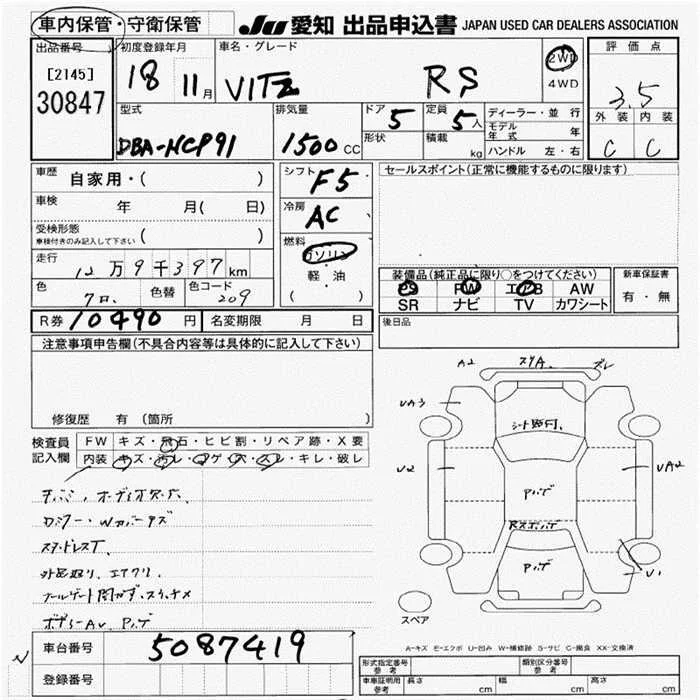 車内保管・守衛保管
JU 愛知 出品申込書 JAPAN USED CAR DEALERS ASSOCIATION
出品番号 初度登録年月 車名・グレード 2WD 評価点
[2145] 18 11月 VITZ RS 4WD 3.5
30847 外装 内装
型式 排気量 ドア 5 定員 5人 ディーラー・並行 C C
DBA-NCP91 1500CC 形状 積載 kg モデル年式 年
ハンドル 左・右
車歴 自家用・( ) シフト F5 セールスポイント(正常に機能するものに限ります)
車検 年 月( 日) 冷房 AC
受検形態 ( )
車検付きのみ記入して下さい
燃料 ガソリン
走行 12万9千397km 軽・油
( )
装備品(純正品に限り○をつけてください) 新車保証書
色 色替 色コード 209
PS PW エアB AW 有・無
SR ナビ TV カワシート
R券 10490円 名変期限 月 日 後日品
注意事項申告欄(不具合内容等は具体的に記入して下さい)
A2 ズレ
UA3
修復歴 有 (箇所
検査員記入欄 FW キズ・飛石・ヒビ割・リペア跡・X要
内装 キズ・汚レ・コゲ・穴・スレ・キレ・破レ
U2 UA2
スタッドレスT
U1
スペア
A-キズ E-エクボ U-凹み W-補修跡 S-サビ C-腐食 XX-交換済
車台番号 5087419
登録番号
形式指定番号 参考 類別区分番号 参考
車庫証明用 参考 長さ cm 幅 cm 高さ cm